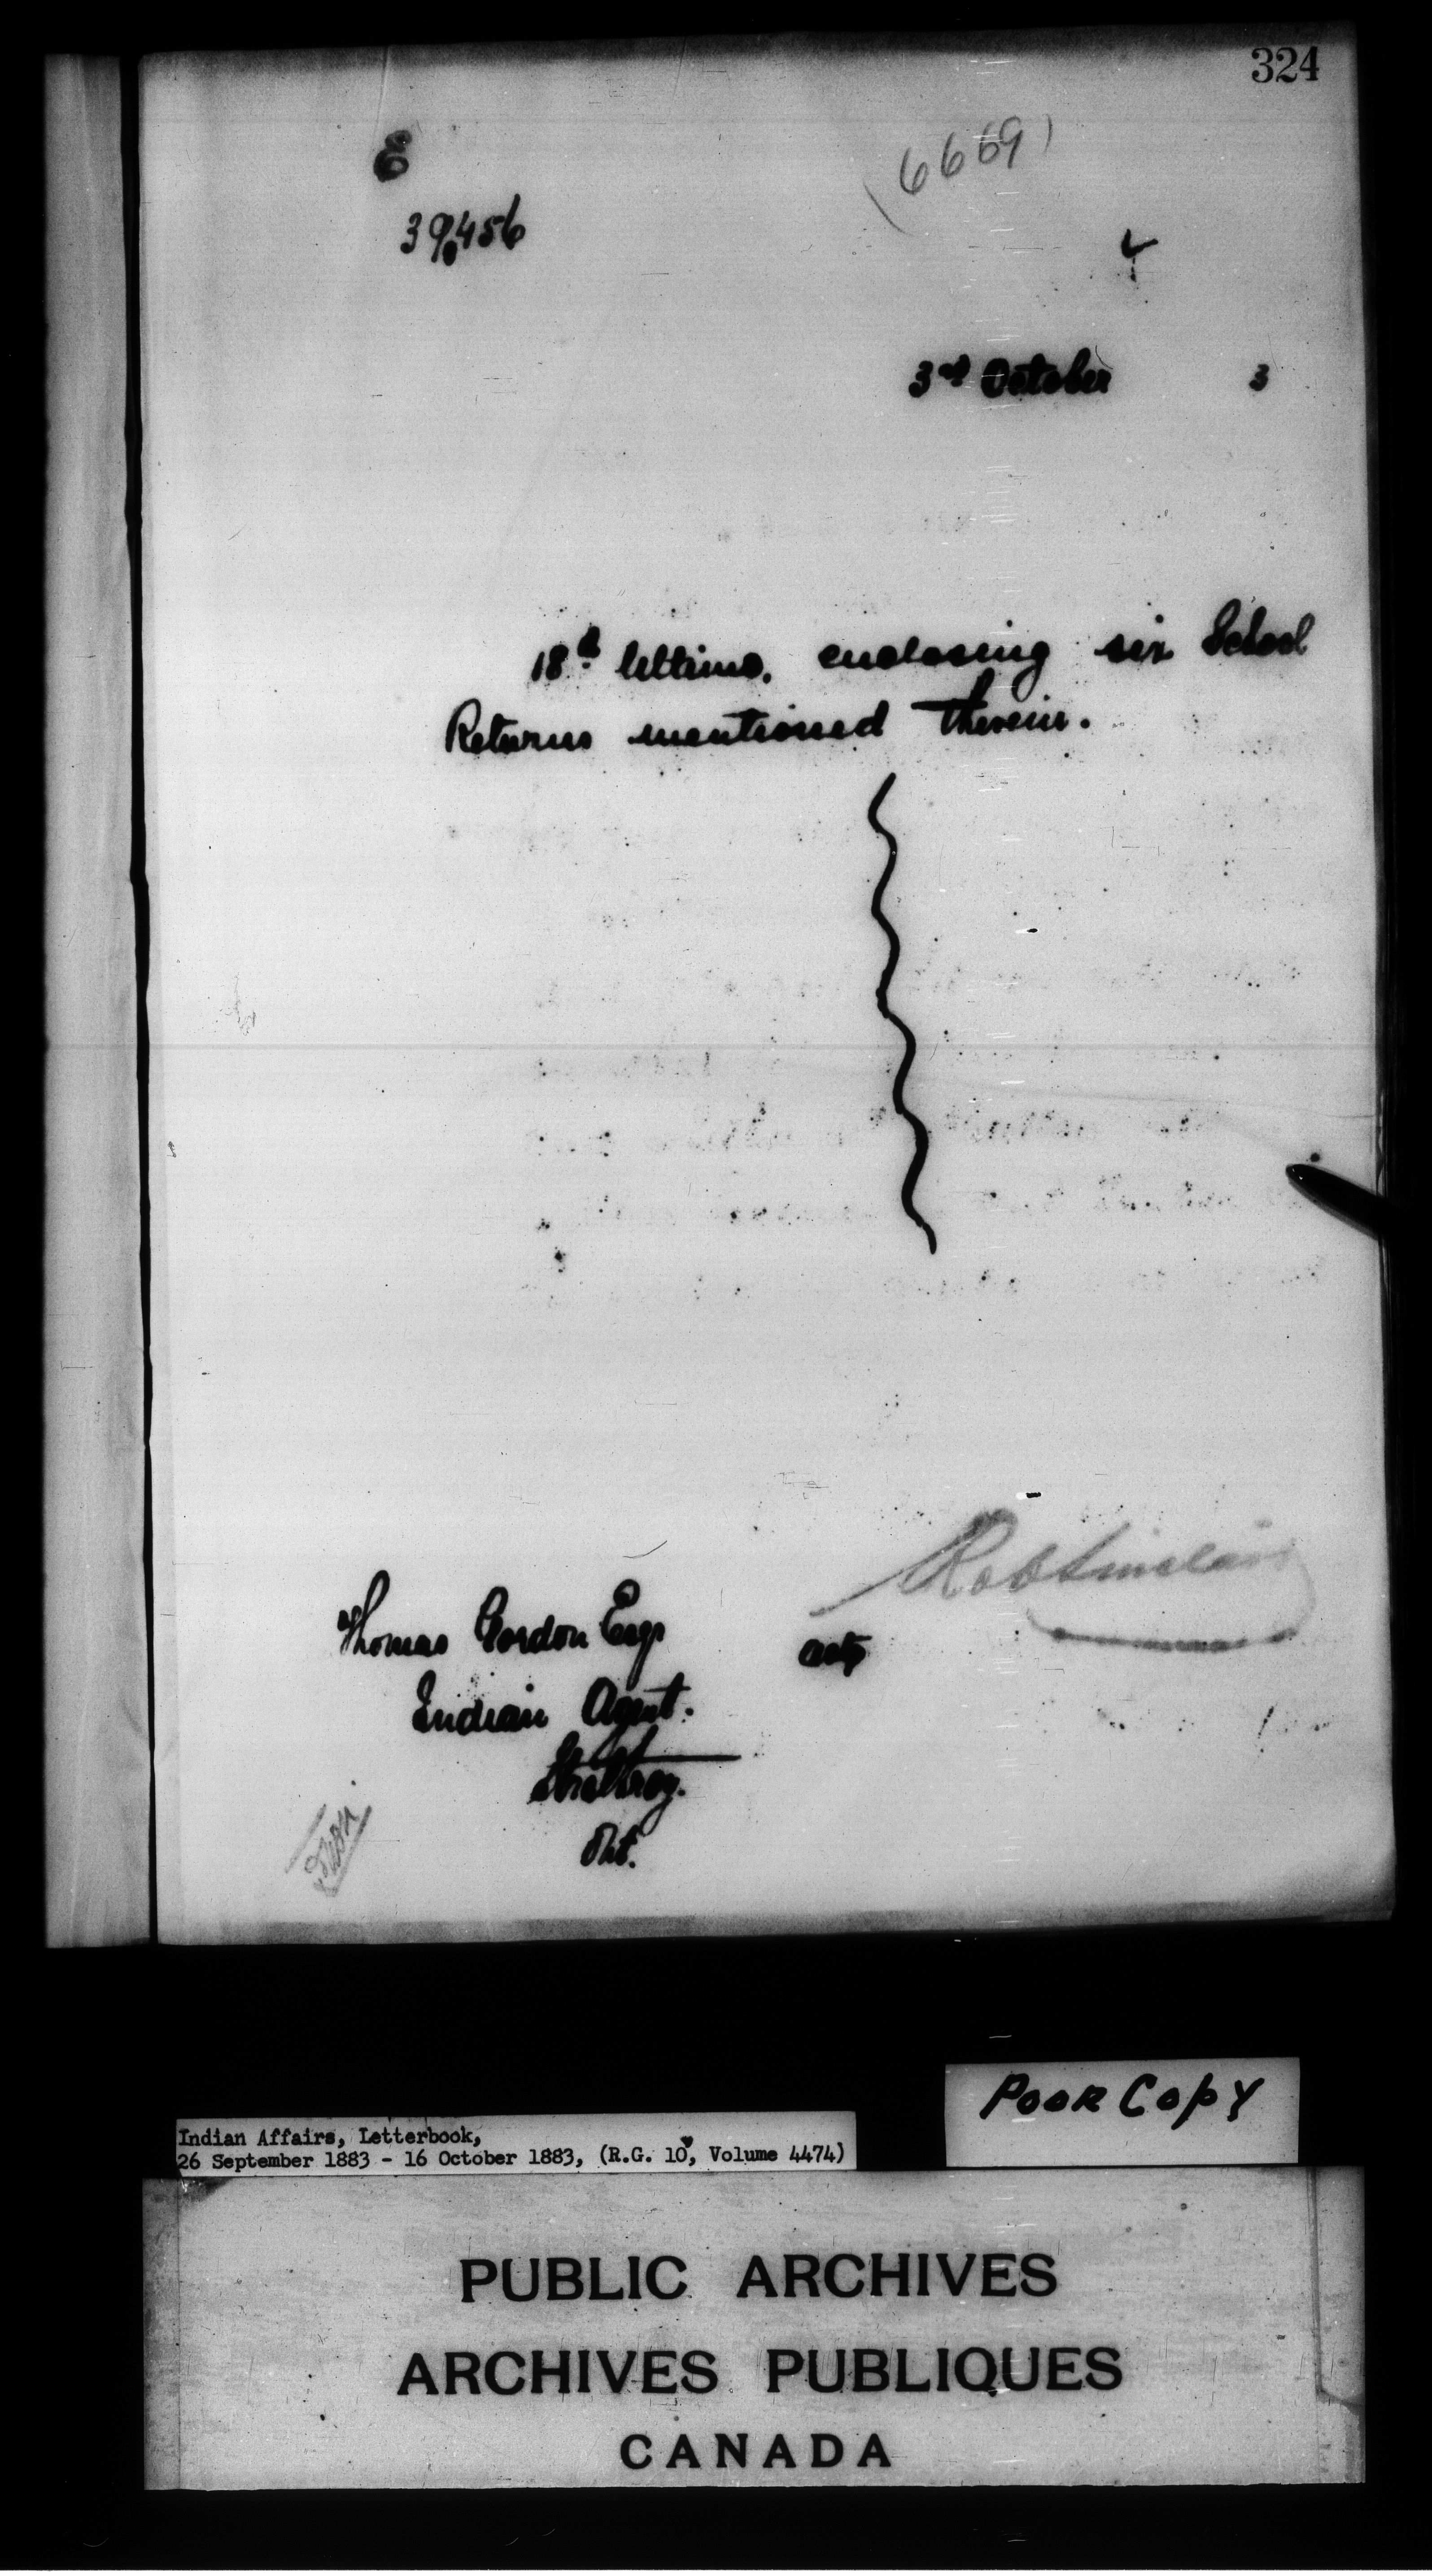 324
E
(6669)
39,456
3rd October 3
18th Ultimo, enclosing six School
Returns mentioned therein.
Rob Sinclair
Thomas Gordon Esqr
acty
Indian Agent.
Strathroy.
Ont.
Poor Copy
Indian Affairs, Letterbook,
26 September 1883 - 16 October 1883, (R.G. 10, Volume 4474)
PUBLIC ARCHIVES
ARCHIVES PUBLIQUES
CANADA